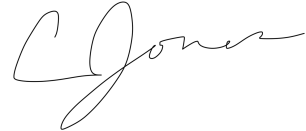 C Jones